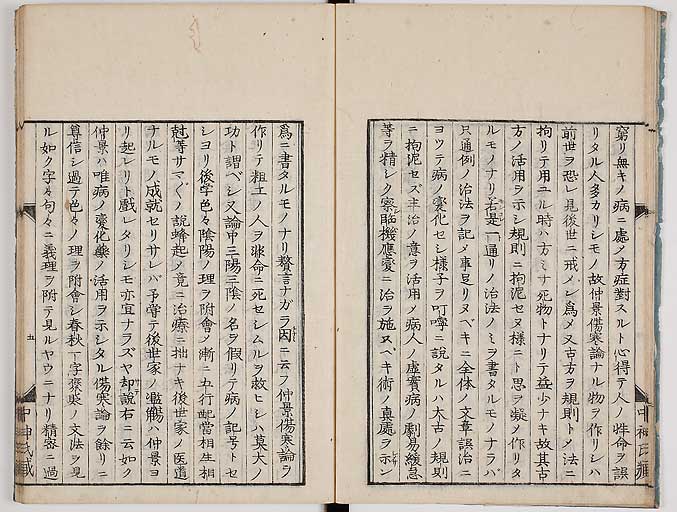 窮リ無キノ病ニ處ノ方症對スルト心得テ人ノ性命ヲ誤
リタル人多カリシモノ故仲景傷寒論ナル物ヲ作リシハ
前世ヲ恐レ見後世ニ戒メシ爲メ又古方ヲ規則トメ法ニ
拘リテ用ユル時ハ方ミナ死物トナリテ益少ナキ故其古
方ノ活用ヲ示シ規則ニ拘泥セヌ様ニト思ヲ凝メ作リタ
ルモノナリ若是一通リノ治法ノミヲ書タルモノナラバ
只通例ノ治法ヲ記メ事足リヌベキニ全体ノ文章誤治ニ
ヨツテ病ノ變化セシ様子ヲ叮嚀ニ說タルハ太古ノ規則
ニ拘泥セズ主治ノ意ヲ活用メ病人ノ虛實病ノ劇易緩急
等ヲ精シク察シ臨機應變ニ治ヲ施スベキ術ノ真處ヲ示シ
爲ニ書タルモノナリ贅言ナガラ因ニ云フ仲景傷寒論ヲ
作リテ粗工ノ人ヲ非命ニ死セシムルヲ救ヒシハ莫大ノ
功ト謂ベシ又論中三陽三陰ノ名ヲ假リテ病ノ記号トセ
シヨリ後学色々陰陽ノ理ヲ附會メ漸ニ五行配當相生相
尅等サマ〲ノ說蜂起メ竟ニ治療ニ拙ナキ後世家ノ医道
ナルモノ成就セリサレバ予嘗テ後世家ノ濫觴ハ仲景ヨ
リ起レリト戲レタリシモ亦宜ナラズヤ却說右ニ云如ク
仲景ハ唯病ノ變化藥ノ活用ヲ示シタル傷寒論ヲ餘リニ
尊信シ過テ色々ノ理ヲ附會シ春秋一字褒貶ノ文法ヲ見
ル如ク字々句々ニ義理ヲ附テ見ルヤウニナリ精密ニ過
五
中神氏藏
中神氏藏